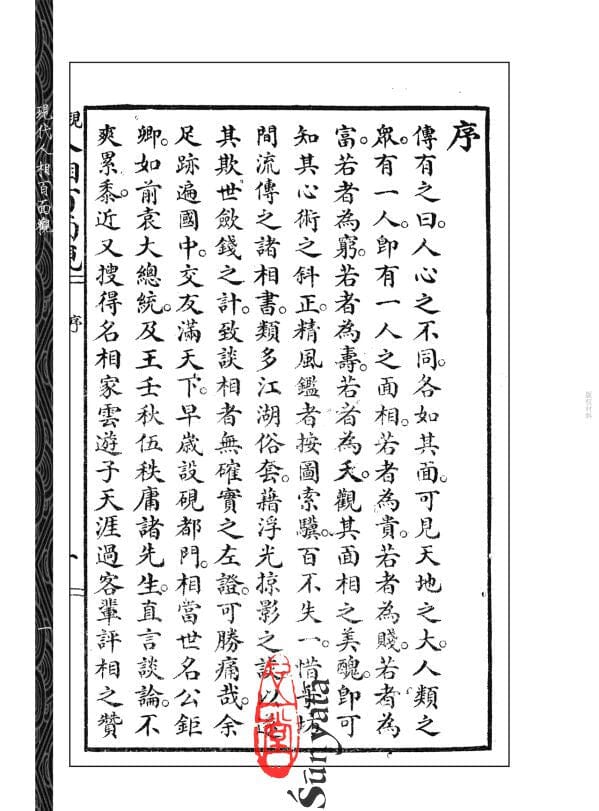 序
傳有之曰。人心之不同。各如其面。可見天地之大。人類之
眾。有一人。卽有一人之面相。若者為貴。若者為賤。若者為
富。若者為窮。若者為壽。若者為夭。觀其面相之美醜。卽可
知其心術之斜正。精風鑑者按圖索驥。百不失一。惜
間流傳之諸相書。類多江湖俗套。藉浮光掠影之談。以
其欺世斂錢之計。致談相者無確實之左證。可勝痛哉。余
足跡遍國中。交友滿天下。早歲設硯都門。相當世名公鉅
卿。如前袁大總統。及王壬秋伍秩庸諸先生。直言談論。不
爽累黍。近又搜得名相家雲遊子天涯過客輩評相之贊
人相百面觀
序
一
現代人相百面觀
一
版权材料
Śūnyatā